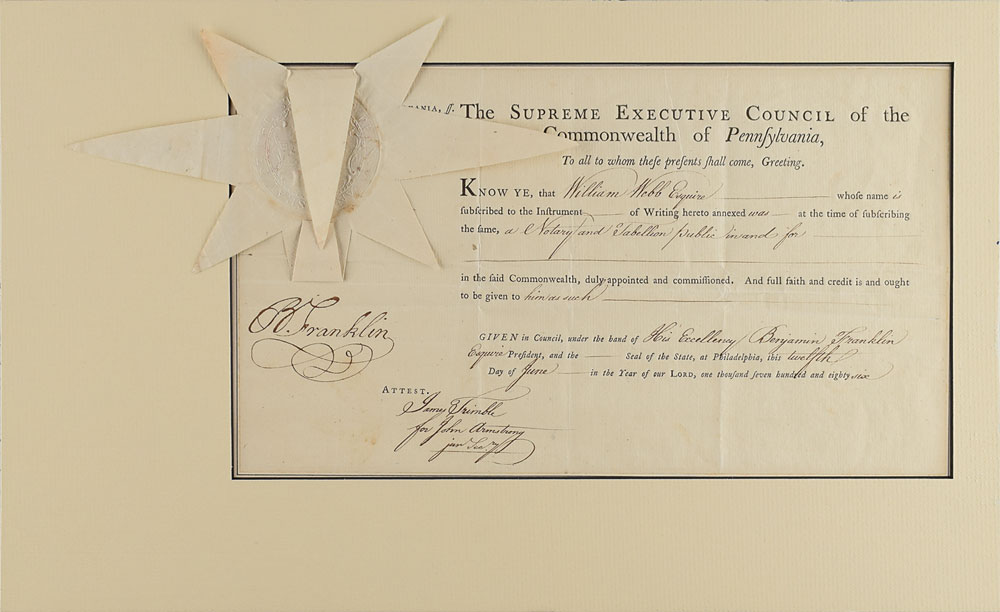 ANIA, ſſ.
The SUPREME EXECUTIVE COUNCIL of the
Commonwealth of Pennſylvania,
To all to whom theſe preſents ſhall come, Greeting.
KNOW YE, that William Webb Esquire whose name is
ſubſcribed to the Inſtrument of Writing hereto annexed was at the time of ſubſcribing
the ſame, a Notary and Tabellion public in and for
in the ſaid Commonwealth, duly appointed and commiſſioned. And full faith and credit is and ought
to be given to him as such
B. Franklin
GIVEN in Council, under the hand of His Excellency Benjamin Franklin
Esquire Preſident, and the Seal of the State, at Philadelphia, this twelfth
Day of June in the Year of our LORD, one thouſand ſeven hundred and eighty six
ATTEST.
James Trimble
for John Armstrong
junr Secry